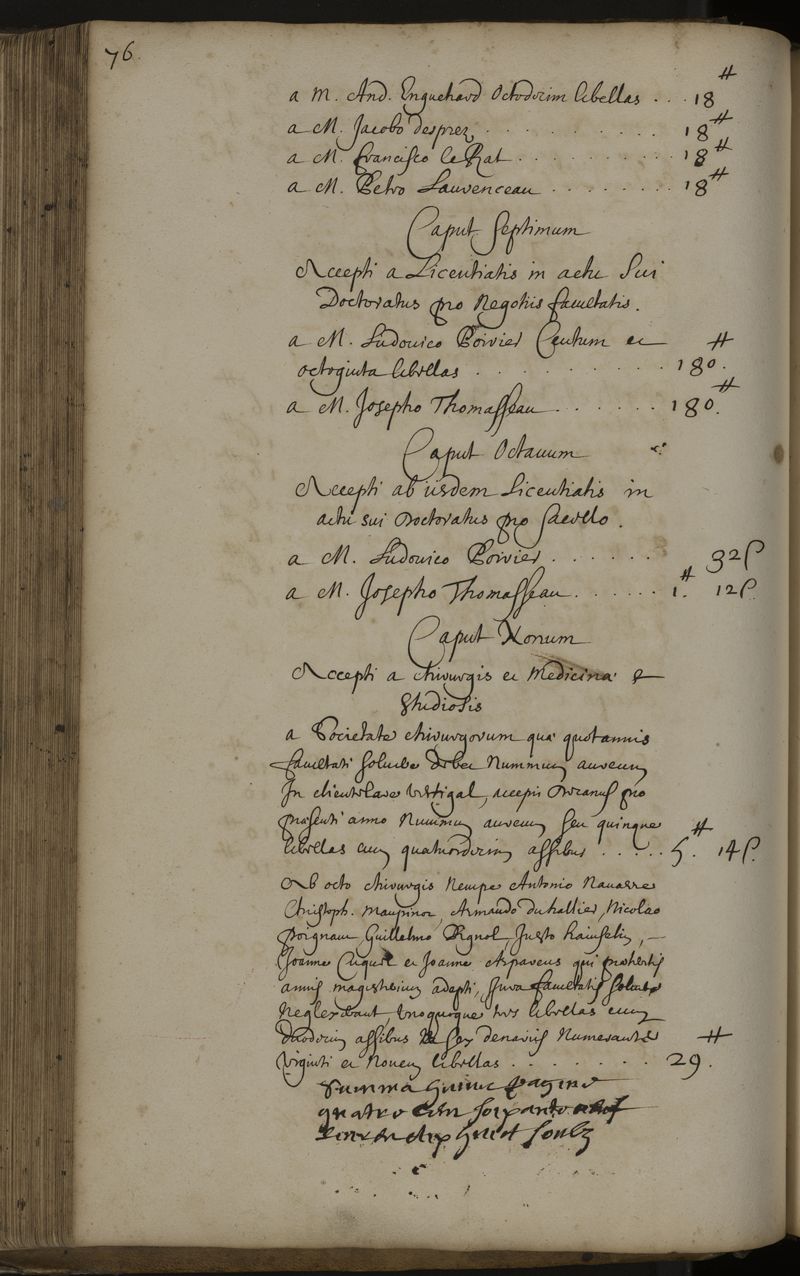 76.
a M. And. Enguehard Octodecim libellas . . . 18 ⧺
a M. Jacobo desprez . . . . . . . . . . 18 ⧺
a M. francisco le Rat . . . . . . . . . . 18 ⧺
a M. Petro Lauvenceau . . . . . . . . 18 ⧺
Caput Septimum
Accepti a Licentiatis in actu Sui
Doctoratus pro Negotiis facultatis.
a M. Ludovico Poirier Centum et
octoginta libellas . . . . . . . . . 180. ⧺
a M. Josepho Thomasseau . . . . . . 180. ⧺
Caput Octauum
Accepti ab iisdem Licentiatis in
actu sui Doctoratus pro sacello.
a M. Ludovico Poirier . . . . . . 32 ſ
a M. Josepho Thomasseau . . . . . . 1. ⧺ 12 ſ.
Caput Nonum
Accepti a chirurgis et Medicinæ
Studiosis
a Societate chirurgorum quæ quotannis
facultati soluere debet Nummum aureum
In clientelare vectigal, accepit Decanus pro
præsenti anno Nummum aureum seu quinque
libellas cum quatuordecim assibus . . . . . 5. ⧺ 14 ſ.
Ab octo chirurgis Nempe Antonio Nauarre
Christoph. Mauginor, Armando duhallier, Nicolao
poignam, Guillelmo Rignol, Justo hainselin, —
Joanne Cuquel et Joanne Arpaveus qui
annis magisterium adepti, Jura facultatis soluere
Neglexerant, unoquoque tres libellas cum
duodecim assibus & sex denariis Numerante
viginti et Novem libellas . . . . . . . . 29. ⧺
Summa huius paginæ
quatre cen soixante neuf
liures dix huict soulz